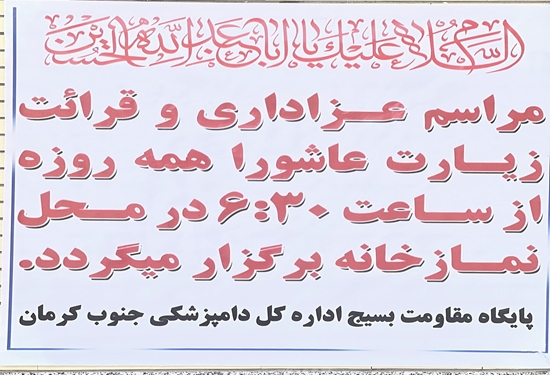 السلام علیك یا اباعبدالله الحسین
مراسم عزاداری و قرائت
زیارت عاشورا همه روزه
از ساعت ۶:۳۰ در محل
نمازخانه برگزار میگردد.
پایگاه مقاومت بسیج اداره کل دامپزشکی جنوب کرمان